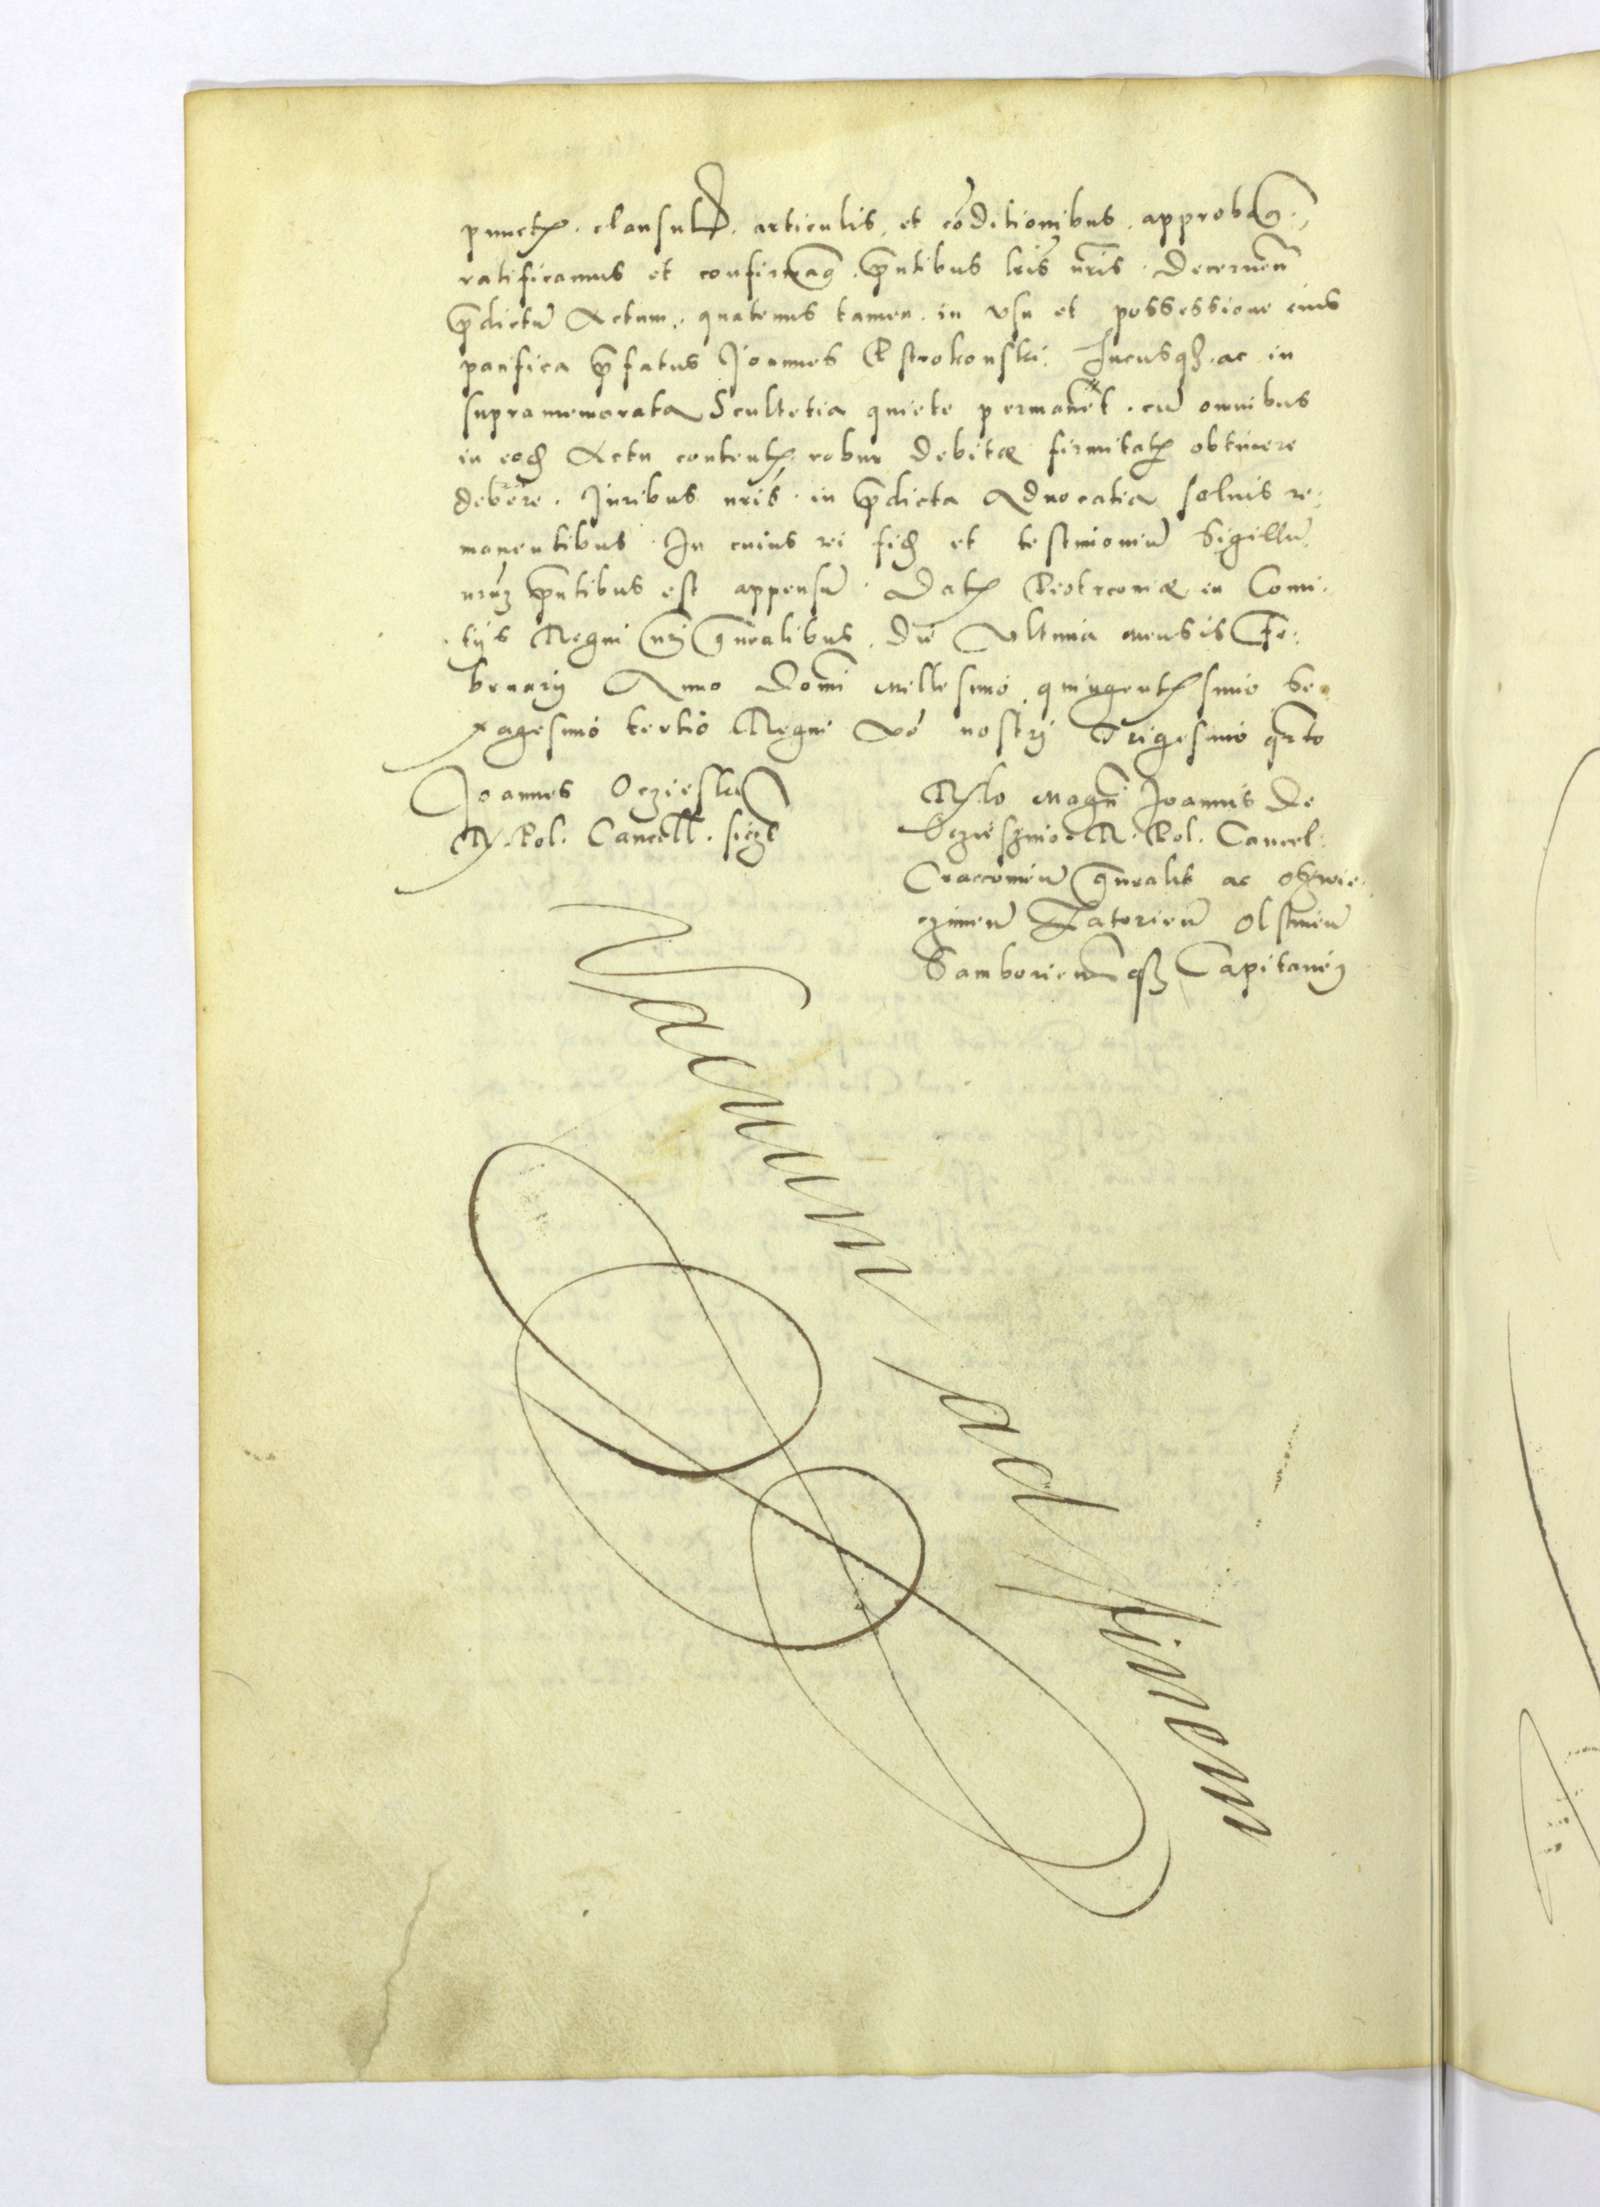 punctis . clausulis . articulis . et cõditionibus . approbamus .
ratificamus et confirmamus . p̃ntibus lr̃is nr̃is . Decernen̄
p̃dictũ Actum . quatenus tamen . in vsu et possessione eius
pacifica p̃fatus Joannes Ostrokonski hucusq3 . ac in
supramemorata Scultetia quiete permanet . cũ omnibus
in eod̃ Actu contentis robur debitæ firmitatis obtinere
debere . Juribus nr̃is . in p̃dicta Aduocatia saluis re:
manentibus . In cuius rei fid̃ et testimoniũ Sigillũ
nr̃u3 p̃ntibus est appensũ . Datum Piotrcouiæ in Comi:
tijs Regni nr̃i gñralibus . Die Vltima mensis Fe:
bruarij Anno Domi millesimo quingentesimo Se:
xagesimo tertio Regni vẽ nostrj Trigesimo qrto
Joannes Oczieski
R. Pol. Cancell . sszt
Rlo Magci Joannis de
Oczieszino R. Pol. Cancel:
Cracouien̄ gñralis ac Oszwie:
czimen̄ Zatorien̄ Olstinen̄
Samborien̄ q3 Capitanej
Vacuum ad finem